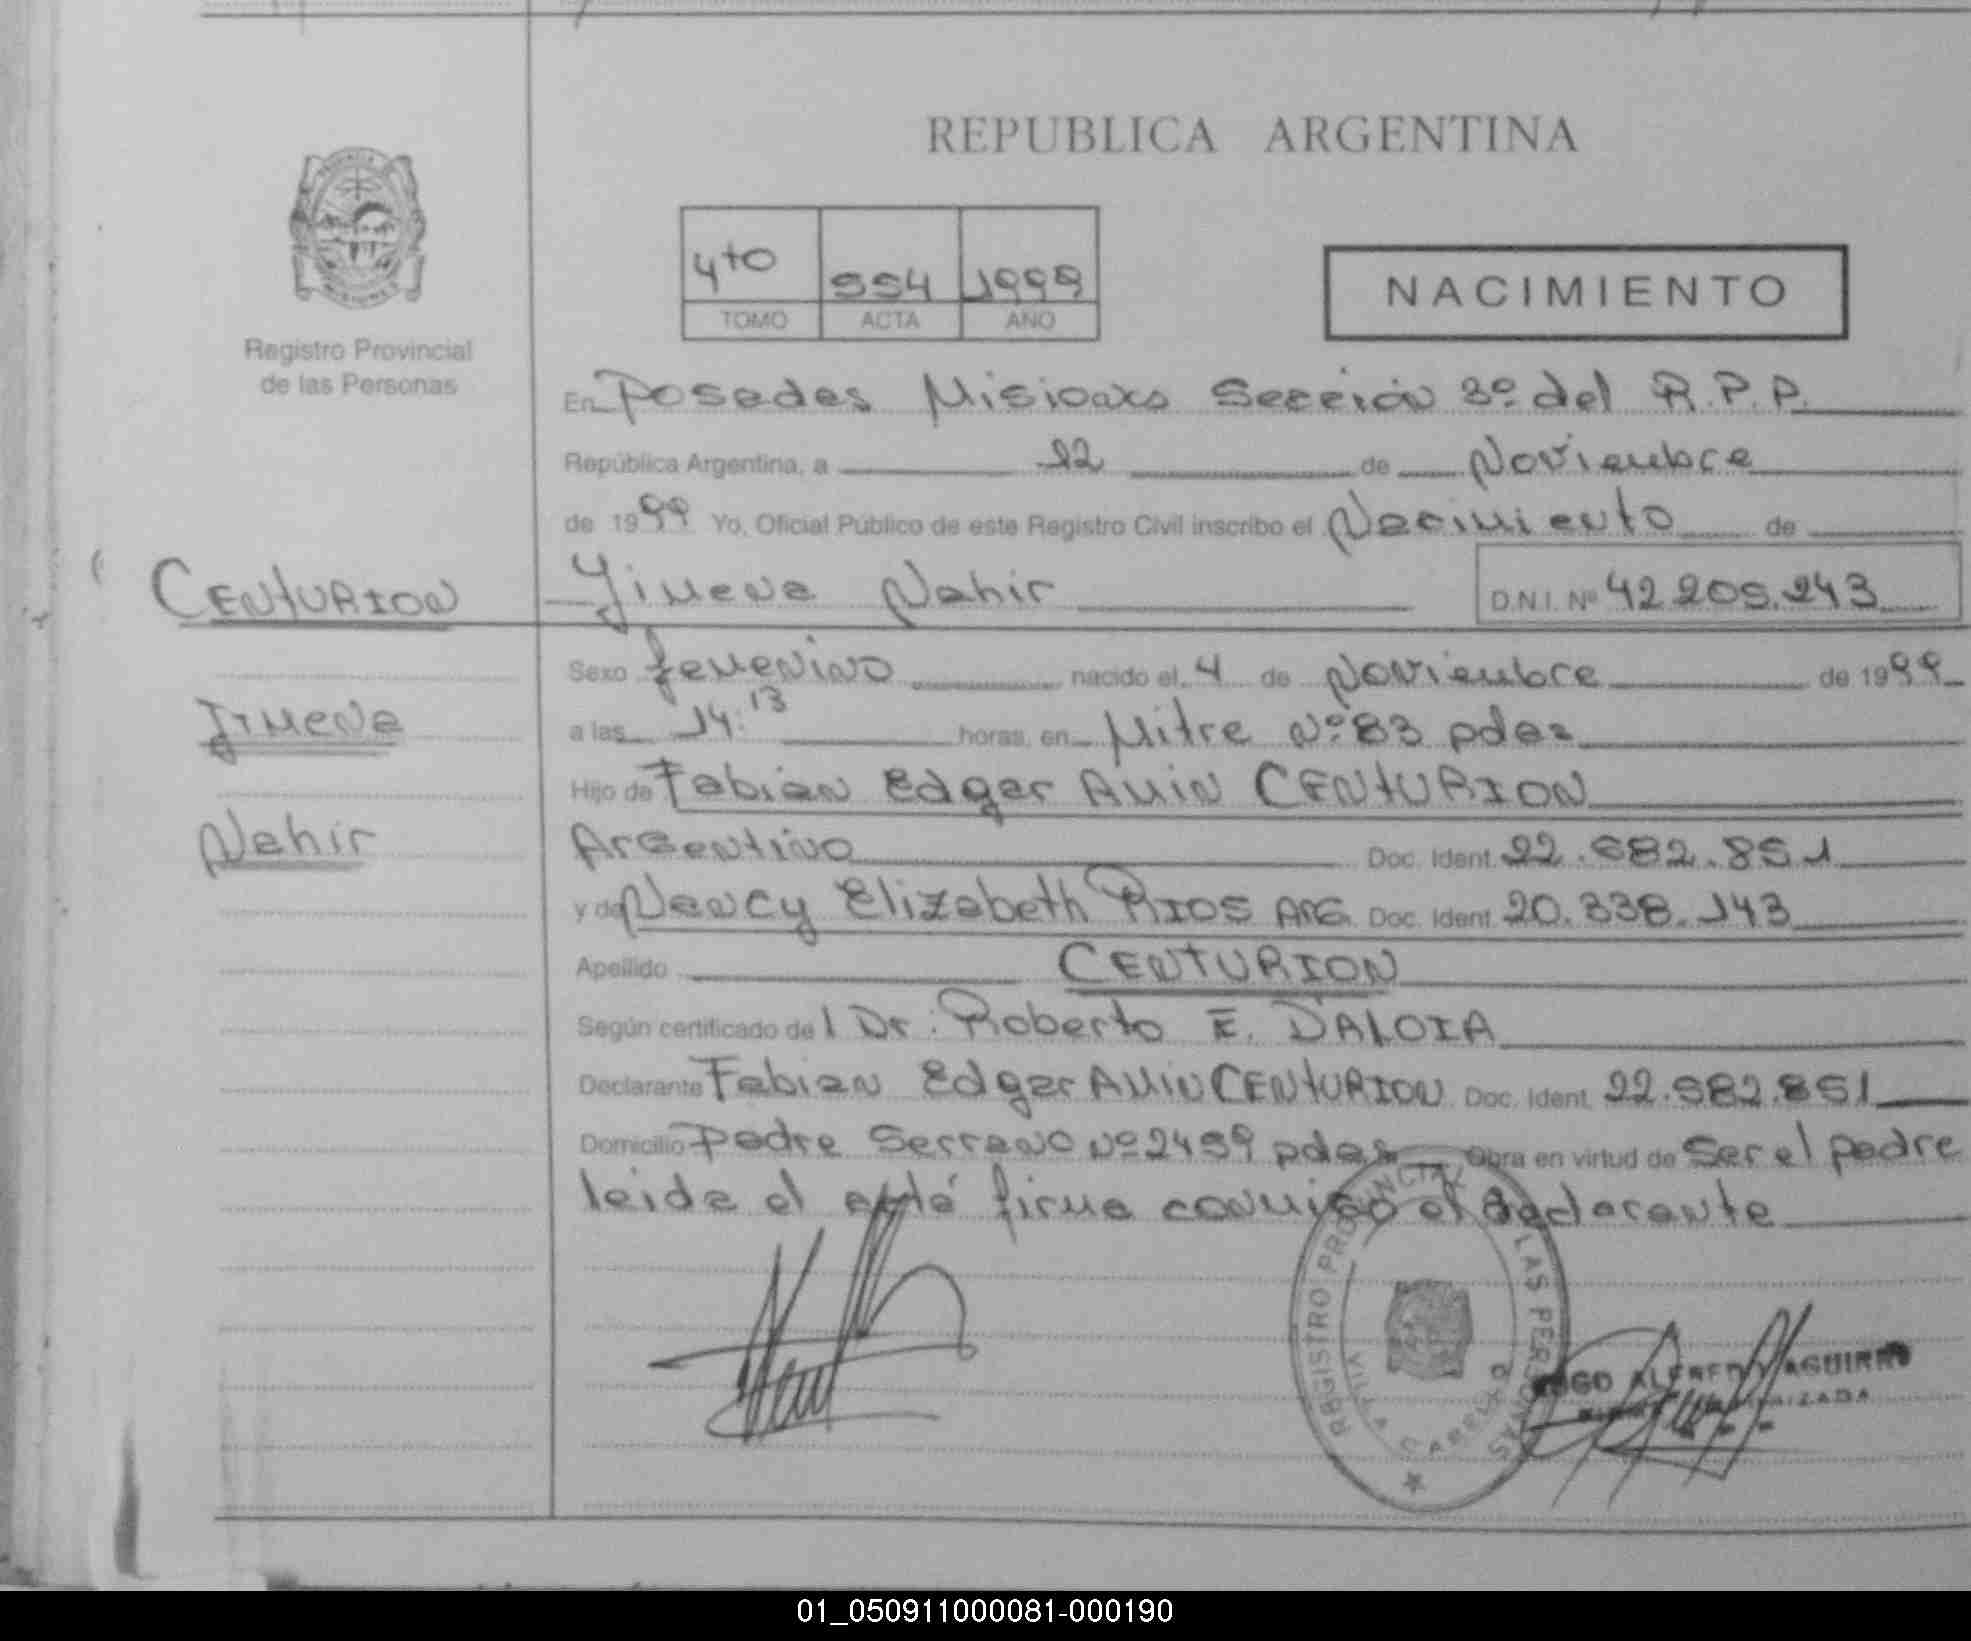 REPUBLICA ARGENTINA
4to 554 1999
TOMO ACTA AÑO
NACIMIENTO
Registro Provincial
de las Personas
En Posadas Misiones Sección 3º del R.P.P.
República Argentina, a 12 de Noviembre
de 1999 Yo, Oficial Público de este Registro Civil inscribo el Nacimiento de
CENTURION Jimena Nahir D.N.I. Nº 42.205.243
Sexo femenino nacido el 4 de Noviembre de 1999
Jimena
a las 14:13 horas, en Mitre Nº 83 pdas
Hijo de Fabián Edgar Amin CENTURION
Nahir
Argentino Doc. Ident. 22.682.851
y de Nancy Elizabeth RIOS ARG. Doc. Ident. 20.338.143
Apellido CENTURION
Según certificado del Dr. Roberto E. D'ALOIA
Declarante Fabian Edgar Amin CENTURION Doc. Ident. 22.582.851
Domicilio Padre Serrano Nº 2459 pdas Obra en virtud de Ser el padre
leida el acta firma conmigo el declarante
REGISTRO PROVINCIAL LAS PERSONAS
VILLA CABELLO
HUGO ALFREDO AGUIRRE
01_050911000081-000190